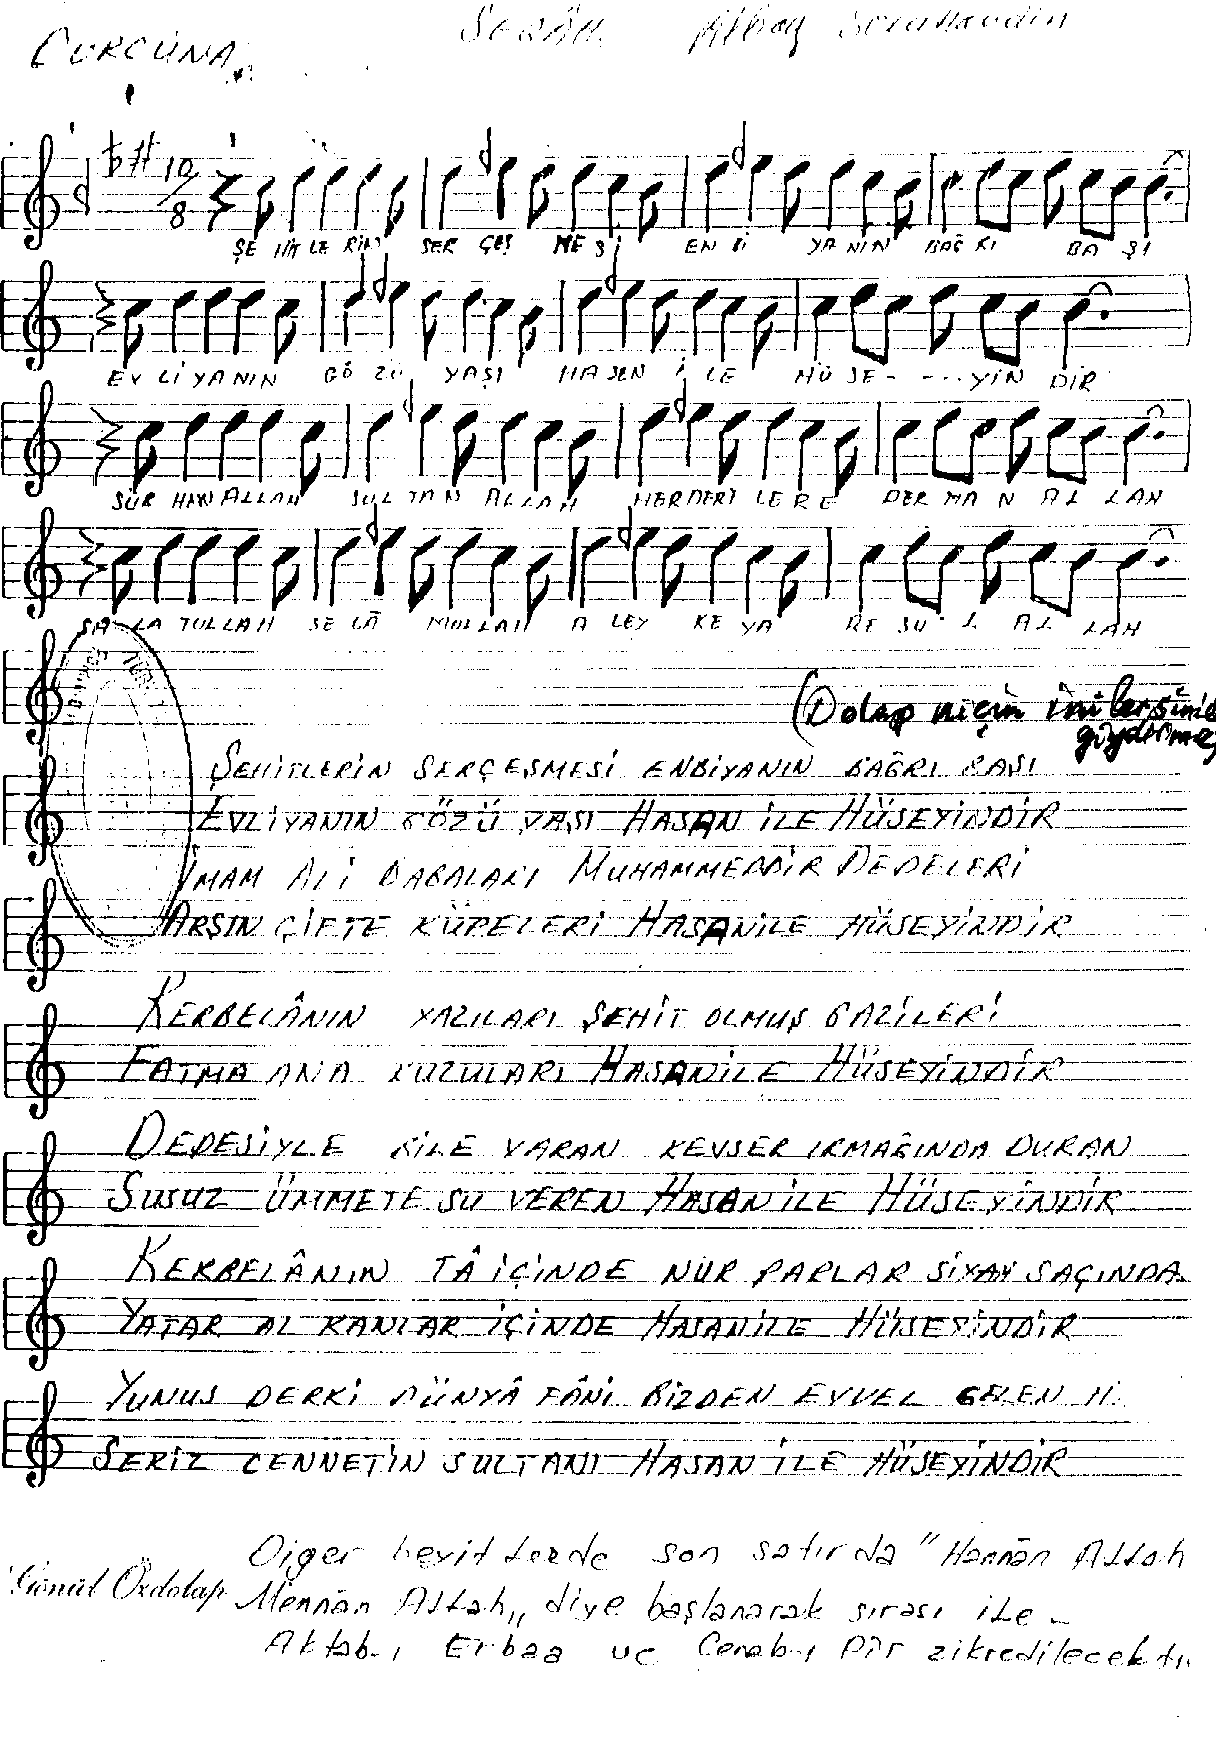 CURCUNA
10
8
ŞE HİT LE RİN SER ÇEŞ ME Sİ EN Bİ YA NIN BAĞ RI BA ŞI
EV Lİ YA NIN GÖ ZÜ YAŞI HA SEN İ LE HÜ SE - - ... YİN DİR
SUB HAN ALLAH SUL TAN ALLAH HER DERT LE RE DER MA N AL LAH
SA LA TULLAH SE LÂ MULLAH A LEY KE YA RE SU - L AL LAH
(Dolap niçin inilersin
ŞEHİTLERİN SERÇEŞMESİ ENBİYANIN BAĞRI BAŞI
EVLİYANIN GÖZÜ YAŞI HASAN İLE HÜSEYİNDİR
İMAM ALİ BABALARI MUHAMMEDDİR DEDELERİ
ARŞIN ÇİFTE KÜPELERİ HASANİLE HÜSEYİNDİR
KERBELÂNIN YAZILARI ŞEHİT OLMUŞ GAZİLERİ
FATMA ANA KUZULARI HASANİLE HÜSEYİNDİR
DEDESİYLE BİLE VARAN KEVSER IRMAĞINDA DURAN
SUSUZ ÜMMETE SU VEREN HASANİLE HÜSEYİNDİR
KERBELÂNIN TÂ İÇİNDE NUR PARLAR SİYAH SAÇINDA
YATAR AL KANLAR İÇİNDE HASANİLE HÜSEYİNDİR
YUNUS DERKİ DÜNYÂ FÂNİ BİZDEN EVVEL GELEN
SEKİZ CENNETİN SULTANI HASAN İLE HÜSEYİNDİR
Diger beyitlerde son satırda "Hannân Allah
Gönül Özdolap Mennân Allah,, diye başlanarak sırası ile -
Aktab-ı Erbaa ve Cenab-ı Pîr zikredilecektir